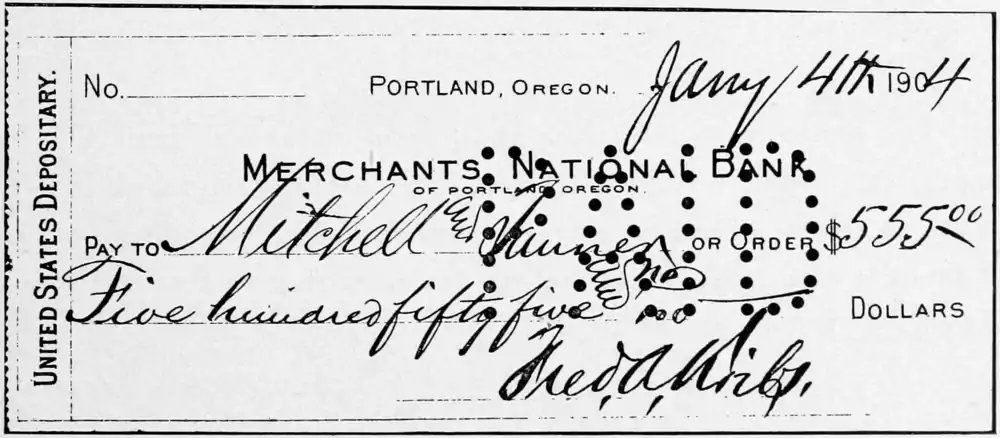 UNITED STATES DEPOSITARY.
No. PORTLAND, OREGON. Jany 4th 1904
MERCHANTS NATIONAL BANK
OF PORTLAND, OREGON.
PAY TO Mitchell & Tanner OR ORDER $555.00
Five hundred fifty five & no/100 DOLLARS
Fred. A. Kribs.
PAID